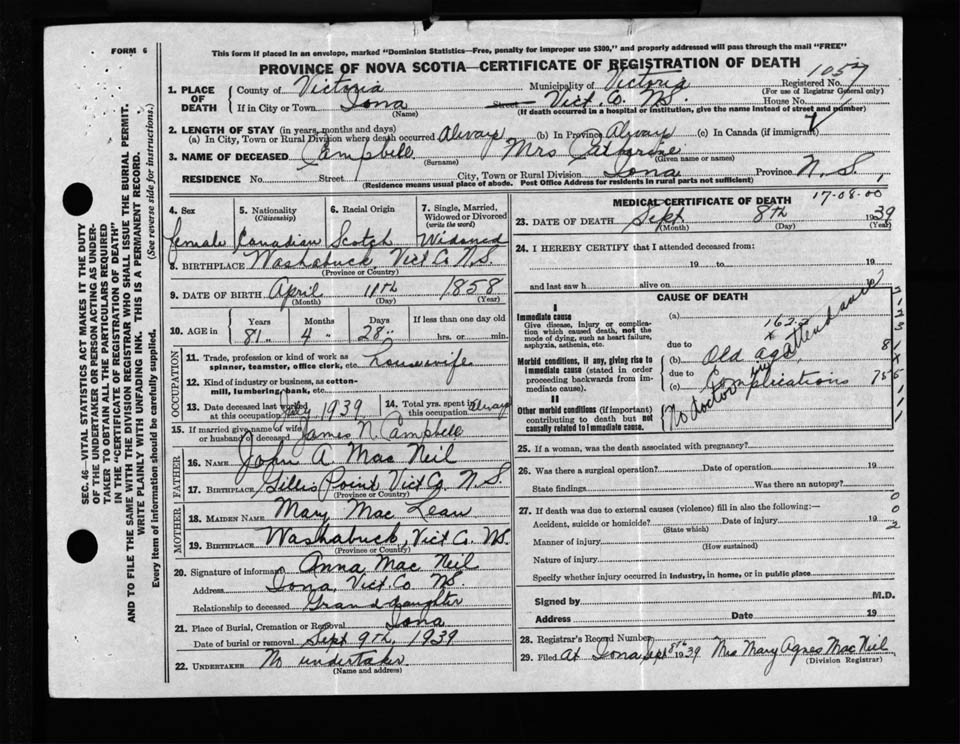 FORM 6
This form if placed in an envelope, marked "Dominion Statistics—Free, penalty for improper use $300," and properly addressed will pass through the mail "FREE"
PROVINCE OF NOVA SCOTIA—CERTIFICATE OF REGISTRATION OF DEATH
1. PLACE OF DEATH County of Victoria Municipality of Victoria Registered No. 1057
(For use of Registrar General only)
If in City or Town Iona (Name) Street Vict. Co. N.S. House No.
(If death occurred in a hospital or institution, give the name instead of street and number)
2. LENGTH OF STAY (in years, months and days)
(a) In City, Town or Rural Division where death occurred Always (b) In Province Always (c) In Canada (if immigrant)
3. NAME OF DECEASED Campbell (Surname) Mrs Catherine (Given name or names)
RESIDENCE No. Street City, Town or Rural Division Iona Province N.S.
(Residence means usual place of abode. Post Office Address for residents in rural parts not sufficient)
4. Sex female
5. Nationality (Citizenship) Canadian
6. Racial Origin Scotch
7. Single, Married, Widowed or Divorced (write the word) Widowed
8. BIRTHPLACE Washabuck Vict Co N.S.
(Province or Country)
9. DATE OF BIRTH April (Month) 11th (Day) 1858 (Year)
10. AGE in Years 81 Months 4 Days 28 If less than one day old hrs. or min.
OCCUPATION
11. Trade, profession or kind of work as spinner, teamster, office clerk, etc. Housewife
12. Kind of industry or business, as cotton-mill, lumbering, bank, etc.
13. Date deceased last worked at this occupation July 1939
14. Total yrs. spent in this occupation Always
15. If married give name of wife or husband of deceased James N. Campbell
FATHER
16. NAME John A Mac Neil
17. BIRTHPLACE Gillis Point Vict Co. N.S.
(Province or Country)
MOTHER
18. MAIDEN NAME Mary Mac Lean
19. BIRTHPLACE Washabuck, Vict Co. N.S.
(Province or Country)
20. Signature of informant Anna Mac Neil
Address Iona, Vict. Co N.S.
Relationship to deceased Grand daughter
21. Place of Burial, Cremation or Removal Iona
Date of burial or removal Sept 9th, 1939
22. UNDERTAKER No undertaker
(Name and address)
MEDICAL CERTIFICATE OF DEATH 17-08-00
23. DATE OF DEATH Sept (Month) 8th (Day) 1939 (Year)
24. I HEREBY CERTIFY that I attended deceased from:
19 to 19
and last saw h alive on 19
CAUSE OF DEATH
I
Immediate cause
Give disease, injury or complication which caused death, not the mode of dying, such as heart failure, asphyxia, asthenia, etc.
(a)
due to
Morbid conditions, if any, giving rise to immediate cause (stated in order proceeding backwards from immediate cause).
(b) Old age
due to
(c) Complications
No doctor in attendance
II
Other morbid conditions (if important) contributing to death but not causally related to immediate cause.
25. If a woman, was the death associated with pregnancy?
26. Was there a surgical operation? Date of operation 19
State findings Was there an autopsy?
27. If death was due to external causes (violence) fill in also the following:—
Accident, suicide or homicide? (State which) Date of injury 19
Manner of injury
(How sustained)
Nature of injury
Specify whether injury occurred in industry, in home, or in public place
Signed by M.D.
Address Date 19
28. Registrar's Record Number
29. Filed at Iona Sept 8th 1939 Mrs Mary Agnes Mac Neil
(Division Registrar)
SEC. 46—VITAL STATISTICS ACT MAKES IT THE DUTY
OF THE UNDERTAKER OR PERSON ACTING AS UNDER-
TAKER TO OBTAIN ALL THE PARTICULARS REQUIRED
IN THE "CERTIFICATE OF REGISTRATION OF DEATH"
AND TO FILE THE SAME WITH THE DIVISION REGISTRAR WHO SHALL ISSUE THE BURIAL PERMIT.
WRITE PLAINLY WITH UNFADING INK. THIS IS A PERMANENT RECORD.
Every item of information should be carefully supplied. (See reverse side for instructions).